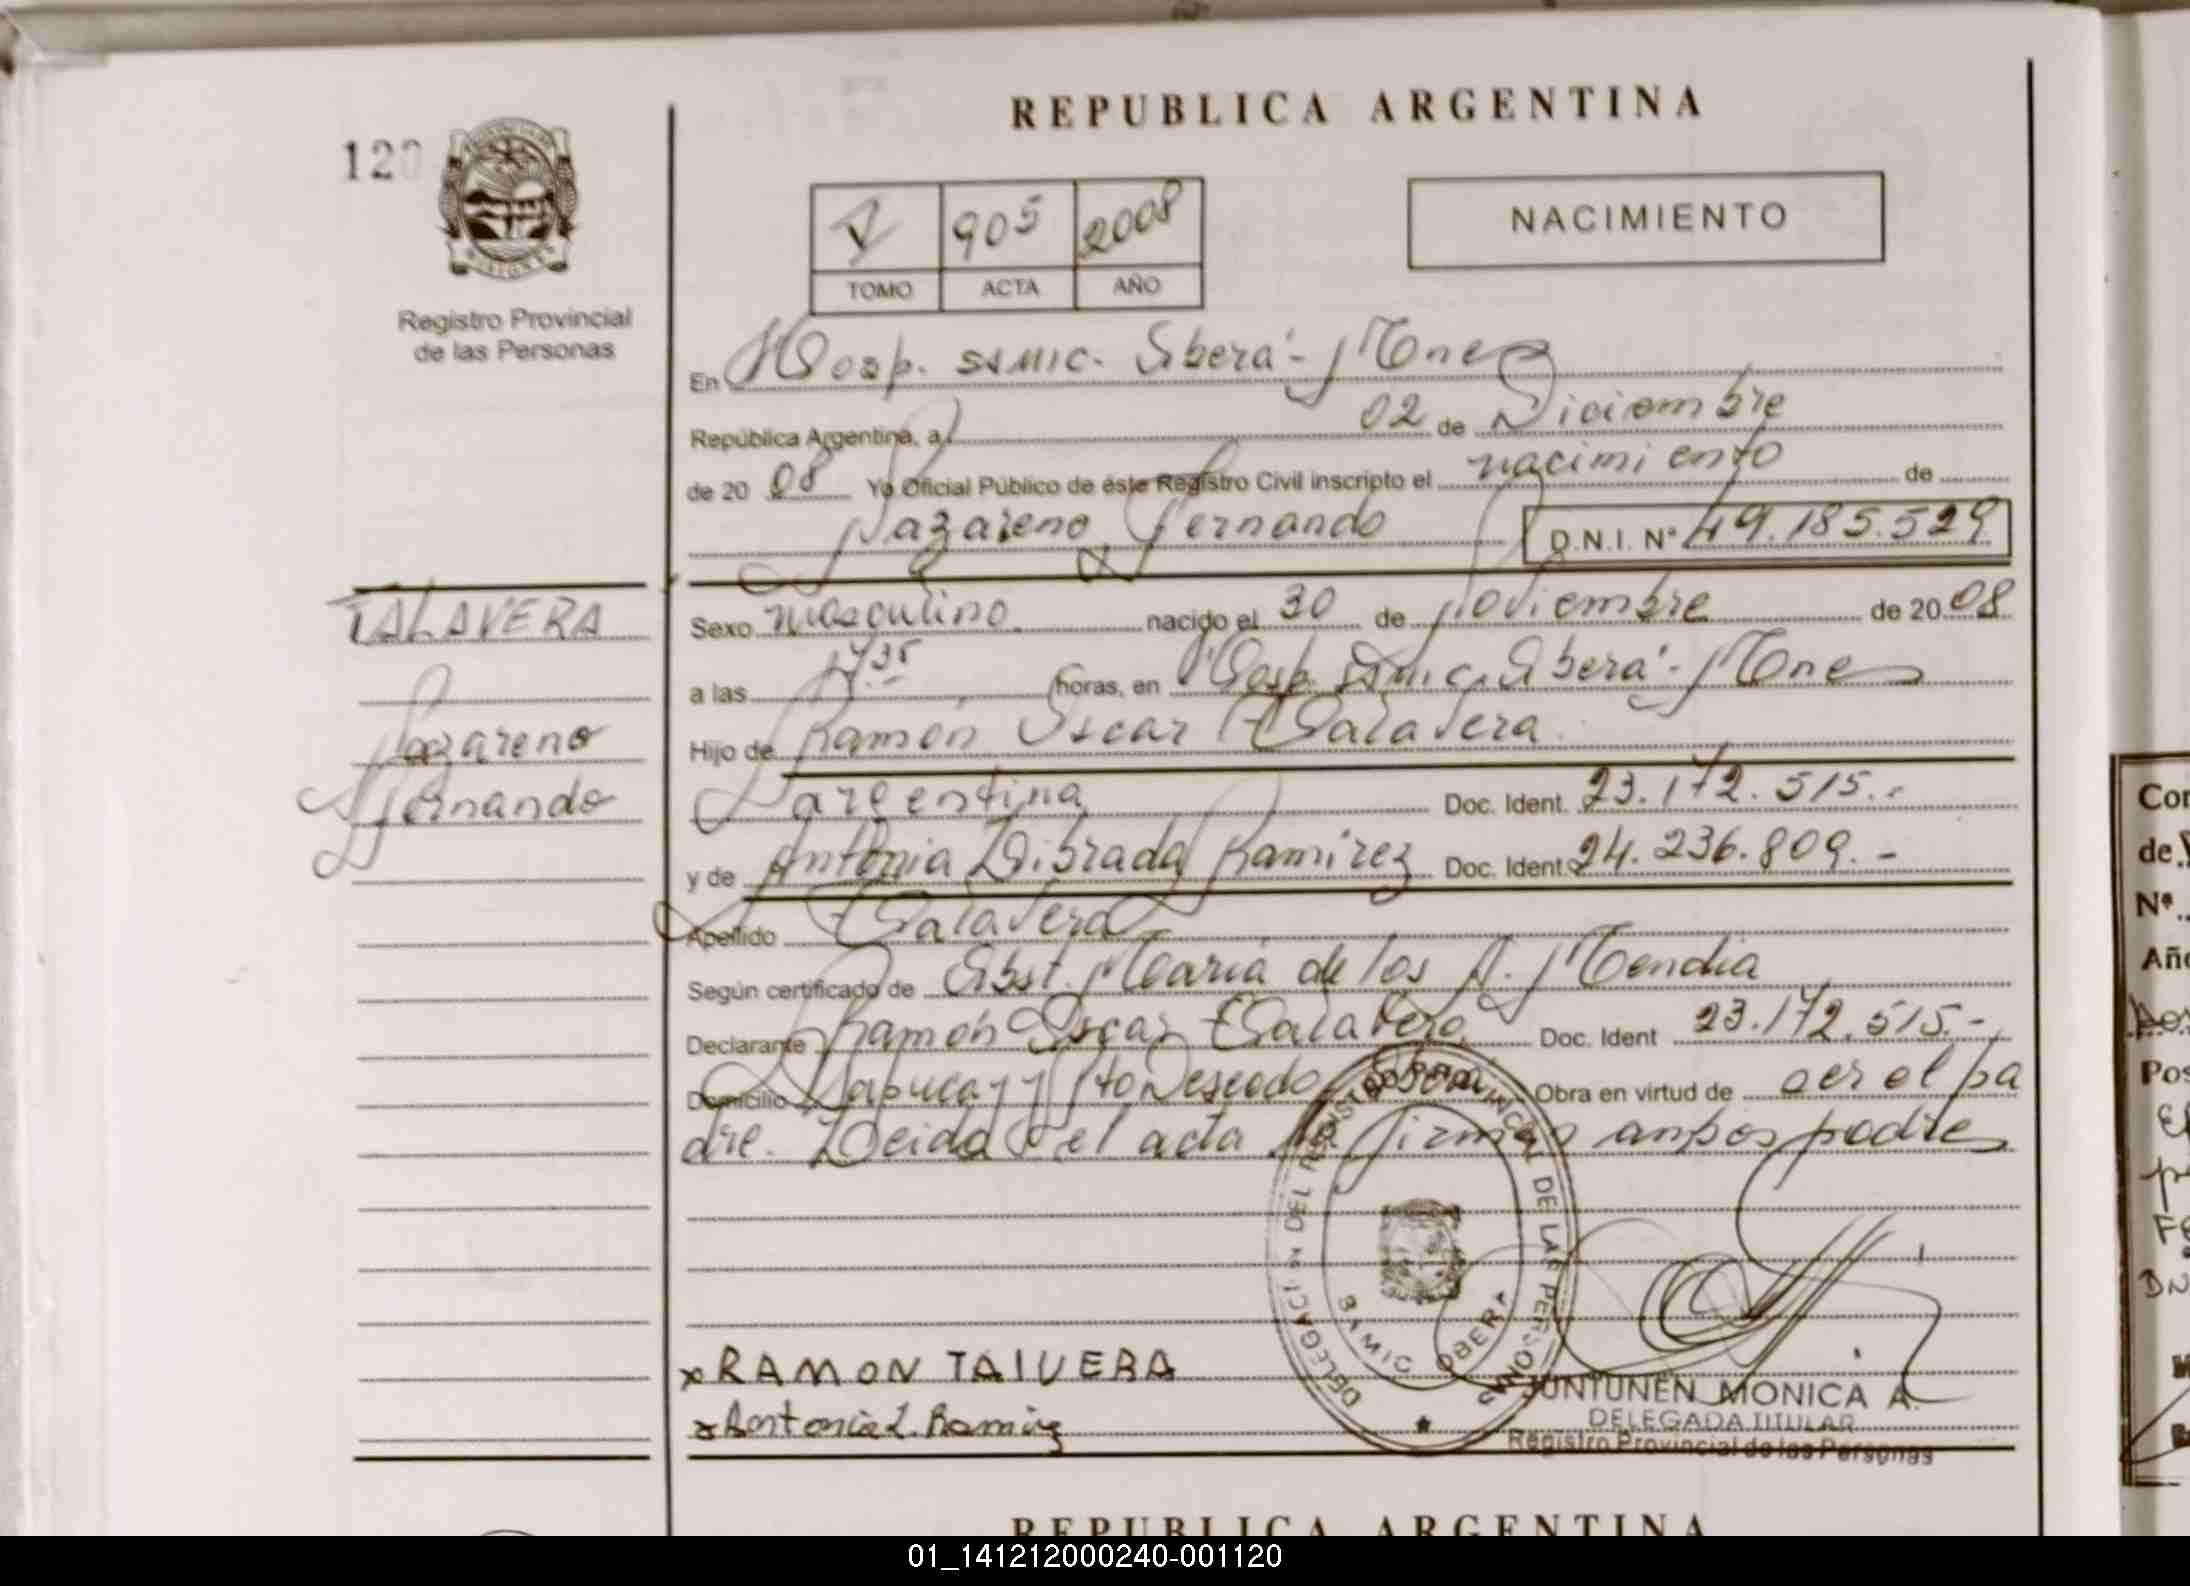 REPUBLICA ARGENTINA
120
905 2008
TOMO ACTA AÑO
NACIMIENTO
MISIONES
Registro Provincial
de las Personas
En Hosp. SAMIC. Oberá - Mnes
República Argentina, a 02 de Diciembre
de 20 08 Yo Oficial Público de éste Registro Civil inscripto el nacimiento de
Nazareno Fernando D.N.I. Nº 49.185.529
TALAVERA
Nazareno
Fernando
Sexo masculino nacido el 30 de Noviembre de 20 08
a las horas, en Hosp. SAMIC. Oberá - Mnes
Hijo de Ramón Oscar Talavera
argentina Doc. Ident. 23.172.515.-
y de Antonia Librada Ramirez Doc. Ident. 24.236.809.-
Apellido Talavera
Según certificado de Obst. Maria de los A. Mendia
Declarante Ramón Oscar Talavera Doc. Ident 23.172.515.-
Domicilio Yapucay y Pto Deseado Oberá Obra en virtud de ser el pa
dre. Leida el acta la firman ambos padres
DELEGACION DEL REGISTRO PROVINCIAL DE LAS PERSONAS
SAMIC OBERA
x RAMON TAIVERA
x Antonia L. Ramirez
JUNTUNEN MONICA A.
DELEGADA TITULAR
Registro Provincial de las Personas
REPUBLICA ARGENTINA
Nº
DN
01_141212000240-001120